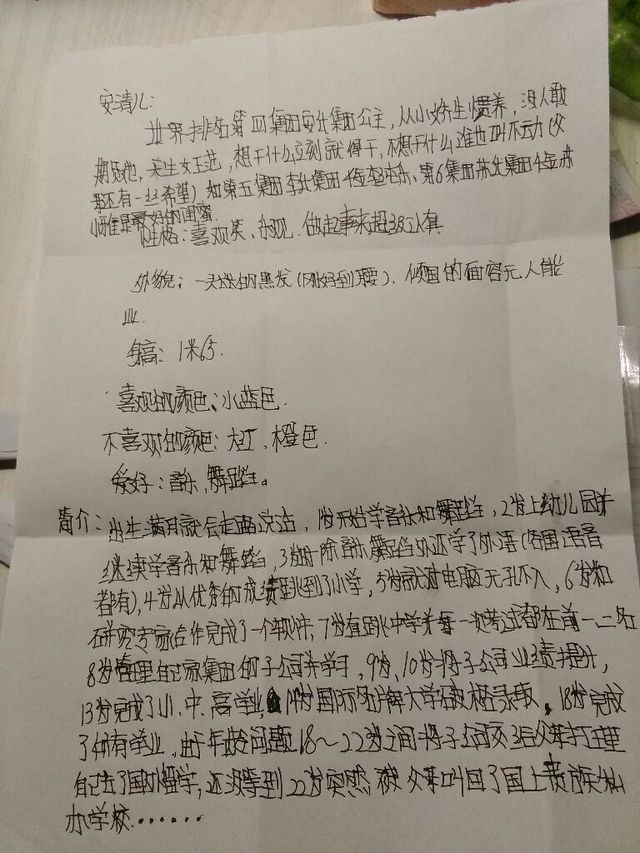 安清儿:
世界排名第四集团安氏集团公主,从小娇生惯养,没人敢
期她,天生女王范,想干什么立刻就得干,不想干什么谁也叫不动(父
母还有一丝希望)和第五集团李氏集团千金李、第6集团苏氏集团千金苏
惟是最好的闺蜜
性格:喜欢笑、乐观、做起事来超级认真
外貌:一头的黑发(刚好到腰),倾国的面容无人能
比
身高:1米65.
喜欢的颜色:水蓝色.
不喜欢的颜色:大红、橙色
爱好:音乐,舞蹈。
简介:出生满月就会走路说话,1岁开始学音乐和舞蹈,2岁上幼儿园并
继续学音乐和舞蹈,3岁时除音乐舞蹈外还学了外语(各国语音
都有),4岁从优秀的成绩跳到了小学,5岁就对电脑无孔不入,6岁和
研究专家合作完成了一个软件,7岁直跳中学并每一次考试都在前一二名
8岁管理自己家集团的子公司并学习,9岁、10岁将子公司业绩提升,
13岁完成了小、中、高学业,14岁国际名牌大学破格录取,18岁完成
了所有学业,由于年龄问题18～22岁之间将子公司交给父亲打理
自己去了国外留学,还没等到22岁突然被父亲叫回了国上贵族私
办学校......